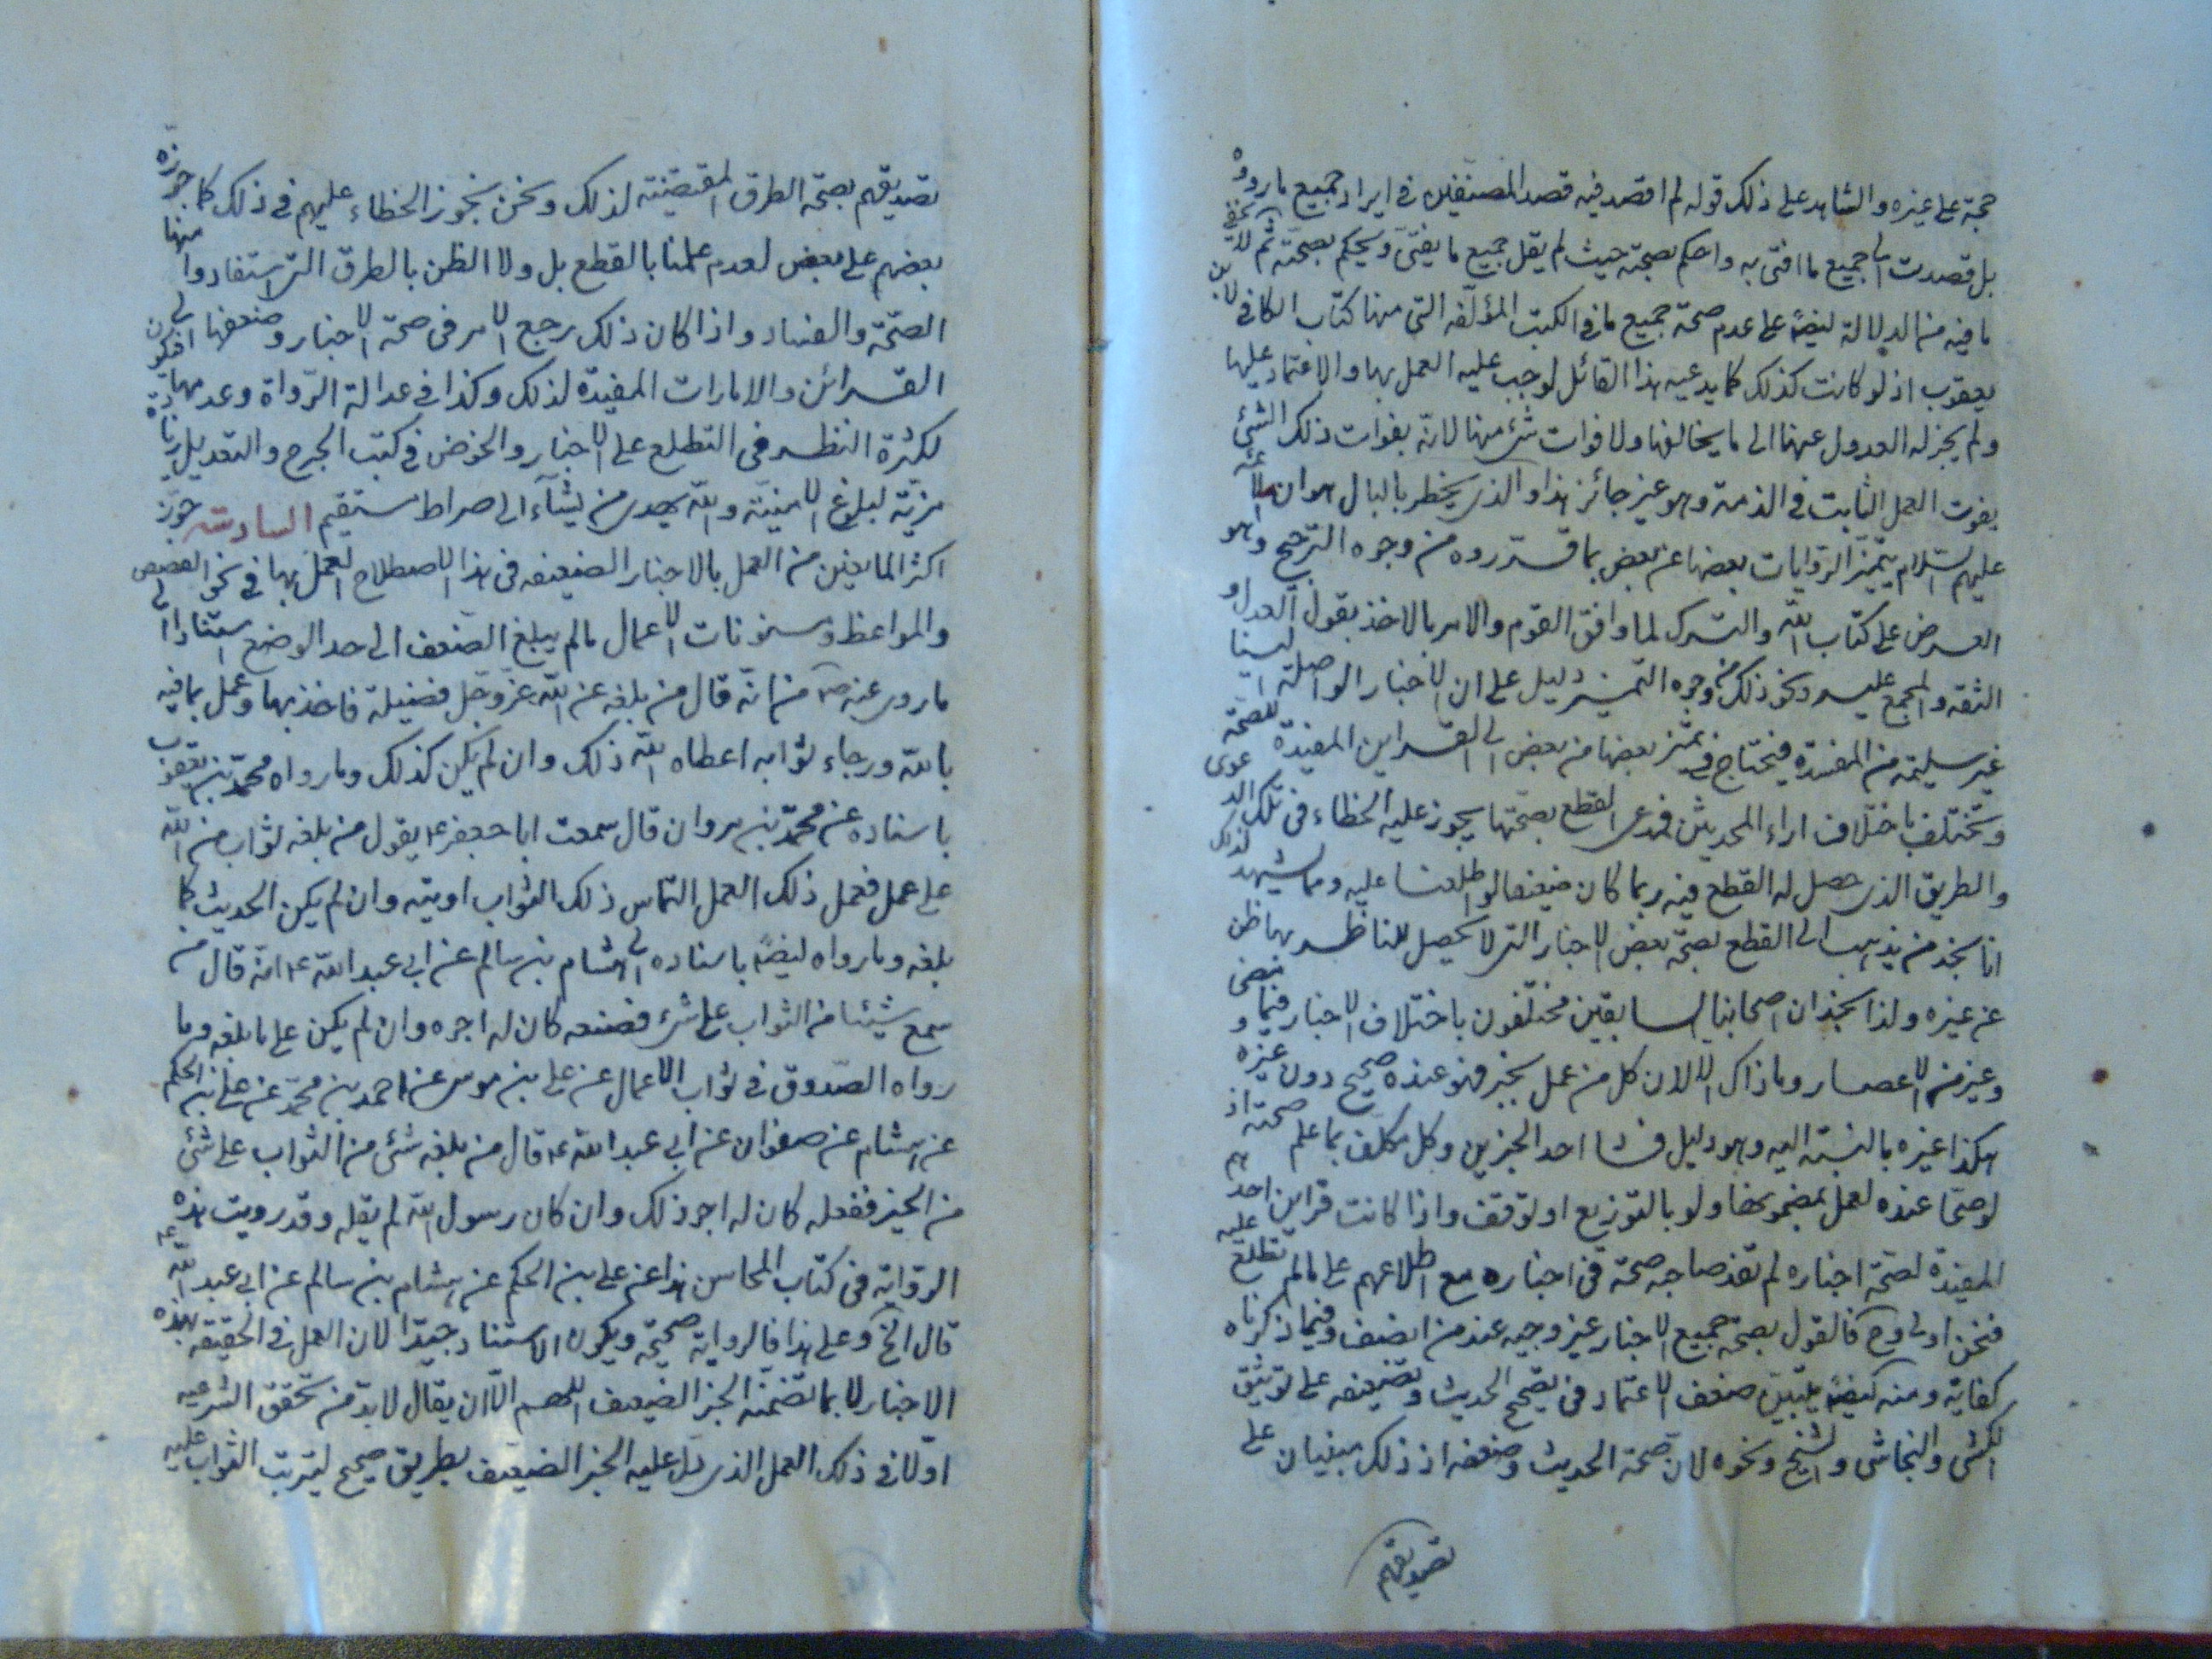 حجة على غيره والشاهد على ذلك قوله لم اقصد فيه قصد المصنفين في ايراد جميع ما رووه
بل قصدت الى جميع ما افتى به واحكم بصحته حيث لم يقل جميع ما يفتى ويحكم بصحته ثم لا يخفى
ما فيه من الدلالة ايضا على عدم صحة جميع ما في الكتب المؤلفة التي منها كتاب الكافي لابن
يعقوب اذ لو كانت كذلك كما يدعيه هذا القائل لوجب عليه العمل بها والاعتماد عليها
ولم يجز له العدول عنها الى ما يخالفها ولا فوات شئ منها لانه بفوات ذلك الشئ
يفوت العمل الثابت في الذمة وهو غير جائز هذا والذي يخطر بالبال هو ان الائمة
عليهم السلام بتميز الروايات بعضها عن بعض بما قرروه من وجوه الترجيح وهو
العرض على كتاب الله والترك لما وافق القوم والامر بالاخذ بقول العدل و
الثقة والمجمع عليه ونحو ذلك من وجوه التميز دليل على ان الاخبار الواصلة الينا
غير سليمة من المفسدة فنحتاج في تميز بعضها من بعض الى القراين المفيدة للصحة
وتختلف باختلاف اراء المحدثين فمدعى القطع بصحتها يجوز عليه الخطاء في تلك الدعوى
والطريق الذي حصل له القطع فيه ربما كان ضعيفا لو اطلعنا عليه ومما يشهد لذلك
انا نجد من يذهب الى القطع بصحة بعض الاخبار التي لا يحصل للناظر بها ظن
عن غيره ولذا نجد ان اصحابنا السابقين مختلفون باختلاف الاخبار فيما مضى و
وغير من الاعصار وما ذاك الا لان كل من عمل بخبر فهو عنده صحيح دون غيره
هكذا غيره بالنسبة اليه وهو دليل فساد احد الخبرين وكل مكلف بما علم صحته اذ
لو صحا عنده لعمل بمضمونهما ولو بالتوزيع او توقف واذا كانت قراين احدهم
المفيدة لصحة اخباره لم تفد صاحبه صحة في اخباره مع اطلاعهم على ما لم نطلع عليه
فنحن اولى وح فالقول بصحة جميع الاخبار غير وجيه عند من انصف وفيما ذكرناه
كفاية ومنه ايضا يتبين ضعف الاعتماد في تصحيح الحديث وتضعيفه على توثيق
الكشي والنجاشي والشيخ ونحوه لان صحة الحديث وضعفه اذ ذلك مبنيان على
تصديقهم
تصديقهم بصحة الطرق المقتضية لذلك ونحن نجوز الخطاء عليهم في ذلك كما جوزه
بعضهم على بعض لعدم علمنا بالقطع بل ولا الظن بالطرق التي استفادوا منها
الصحة والفساد واذا كان ذلك رجع الامر في صحة الاخبار وضعفها الى
القرائن والامارات المفيدة لذلك وكذا في عدالة الرواة وعدمها فيكون
لكثرة النظر في التطلع على الاخبار والخوض في كتب الجرح والتعديل زيادة
مزية لبلوغ الامنية والله يهدي من يشآء الى صراط مستقيم السادسة جوز
اكثر المانعين من العمل بالاخبار الضعيفه في هذا الاصطلاح العمل بها في نحو القصص
والمواعظ ومسنونات الاعمال ما لم يبلغ الضعف الى حد الوضع استنادا الى
ما روى عنه ص من انه قال من بلغه عن الله عز وجل فضيلة فاخذ بها وعمل بما فيه
بالله ورجاء ثوابه اعطاه الله ذلك وان لم يكن كذلك وما رواه محمد بن يعقوب
باسناده عن محمد بن مروان قال سمعت ابا جعفر ع يقول من بلغه ثواب من الله
على عمل فعمل ذلك العمل التماس ذلك الثواب اوتيه وان لم يكن الحديث كما
بلغه وما رواه ايضا باسناده الى هشام بن سالم عن ابي عبد الله ع انه قال من
سمع شيئا من الثواب على شئ فصنعه كان له اجره وان لم يكن على ما بلغه وما
رواه الصدوق في ثواب الاعمال عن على بن موسى عن احمد بن محمد عن على بن الحكم
عن هشام عن صفوان عن ابي عبد الله ع قال من بلغه شئ من الثواب على شئ
من الخير ففعله كان له اجر ذلك وان كان رسول الله لم يقله وقد رويت هذه
الرواية في كتاب المحاسن هذا عن على بن الحكم عن هشام بن سالم عن ابي عبد الله ع
قال الخ وعلى هذا فالرواية صحيحة ويكون الاستناد جيدا لان العمل في الحقيقة بهذه
الاخبار لا بما تضمنه الخبر الضعيف اللهم الا ان يقال لا بد من تحقق الشرعيه
اولا في ذلك العمل الذي دل عليه الخبر الضعيف بطريق صحيح ليترتب الثواب عليه